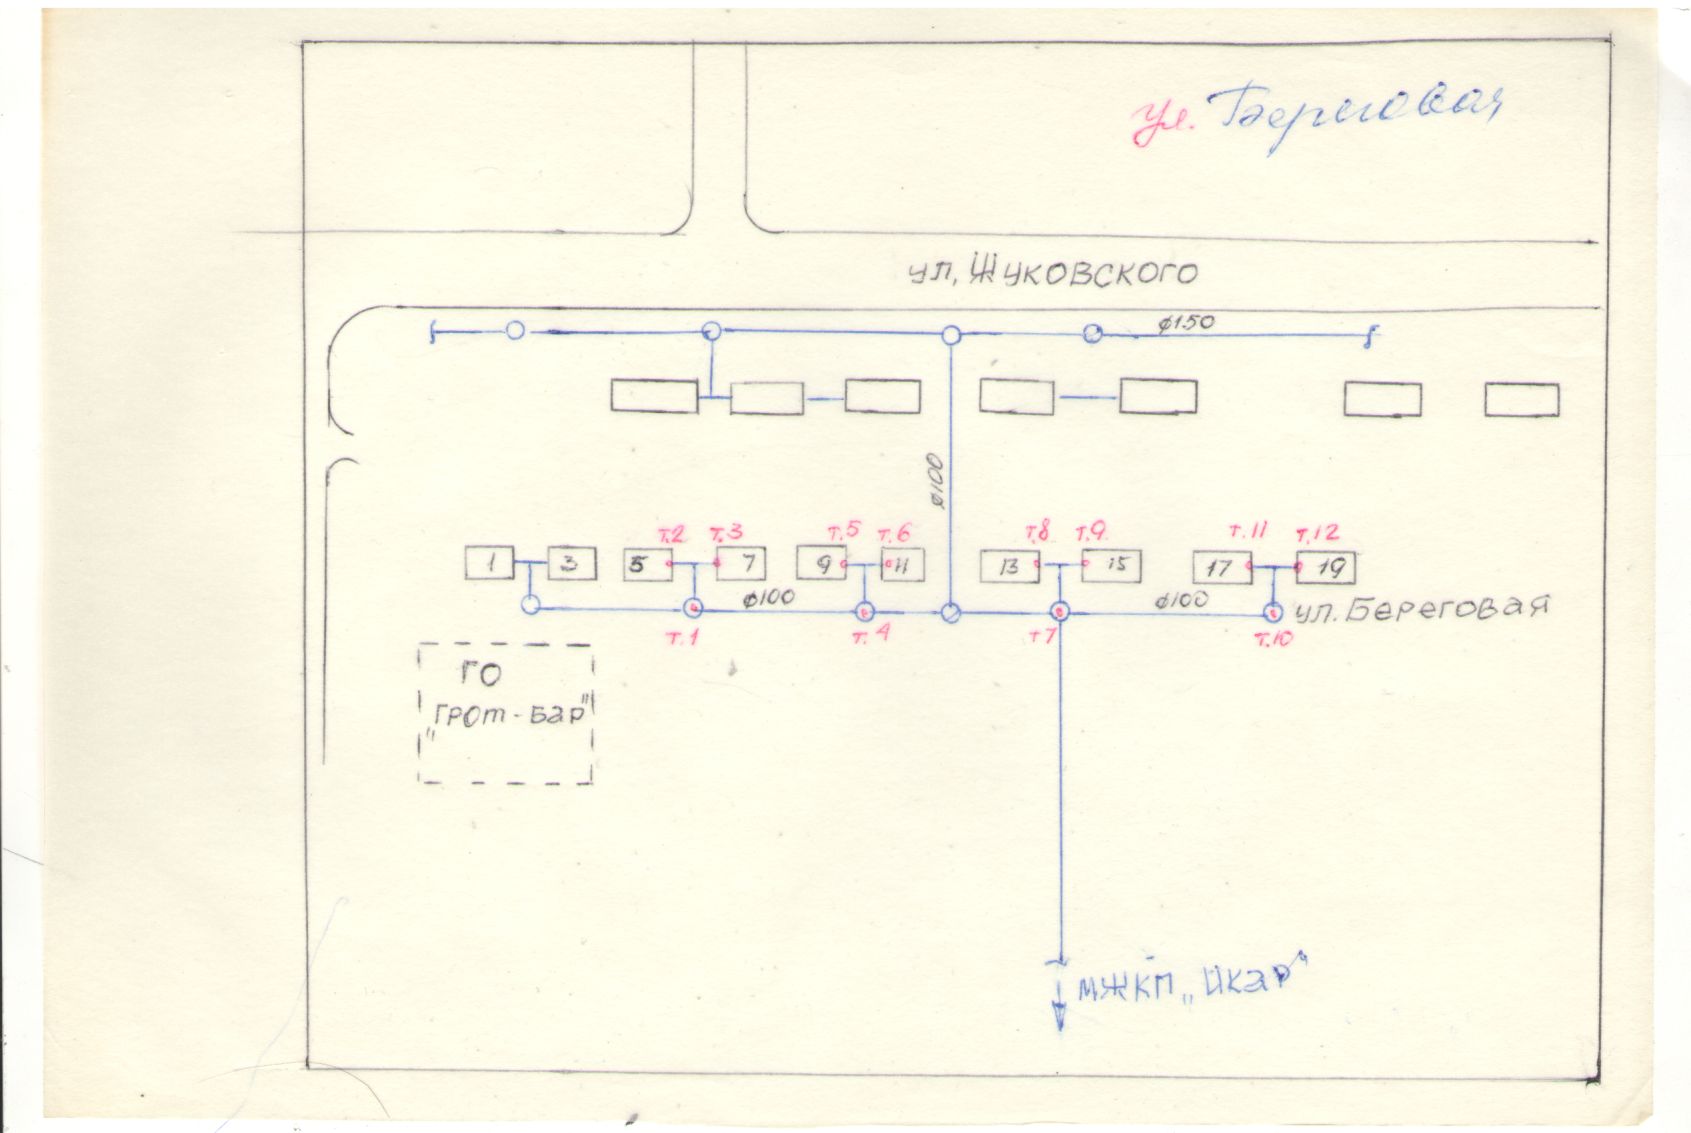 ул. Береговая
ул, Жуковского
ф150
ф100
т.2 т.3 т.5 т.6 т.8 т.9 т.11 т.12
1 3 5 7 9 11 13 15 17 19
ф100 ф100 ул. Береговая
т.1 т.4 т7 т.10
ГО
"Грот-бар"
МЖКП „Икар"